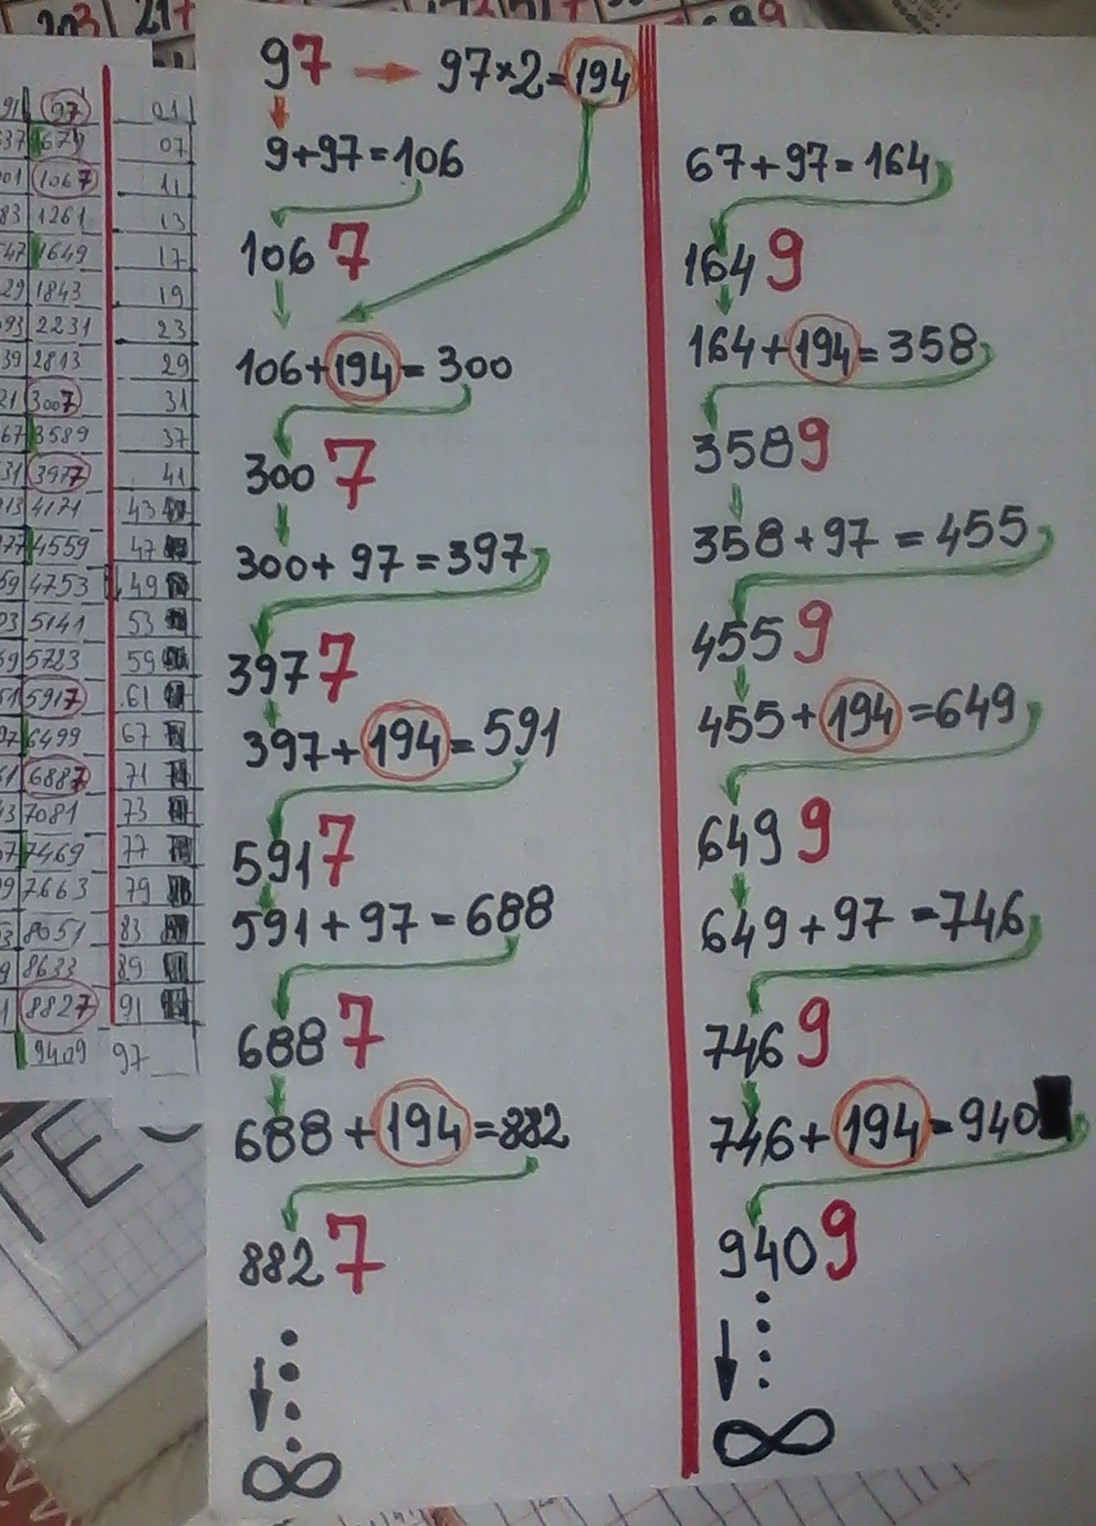 203 217
91 97 01
37 1679 07
01 1067 11
83 1261 13
47 1649 17
29 1843 19
93 2231 23
39 2813 29
21 3007 31
67 3589 37
31 3977 41
13 4171 43
77 4559 47
59 4753 49
03 5141 53
69 5723 59
51 5917 61
97 6499 67
61 6887 71
43 7081 73
57 7469 77
99 7663 79
03 8051 83
9 8633 89
1 8827 91
9409 97
97 → 97×2=194
9+97=106
1067
106+194=300
3007
300+97=397
3977
397+194=591
5917
591+97=688
6887
688+194=882
8827
∞
67+97=164
1649
164+194=358
3589
358+97=455
4559
455+194=649
6499
649+97=746
7469
746+194=940
9409
∞